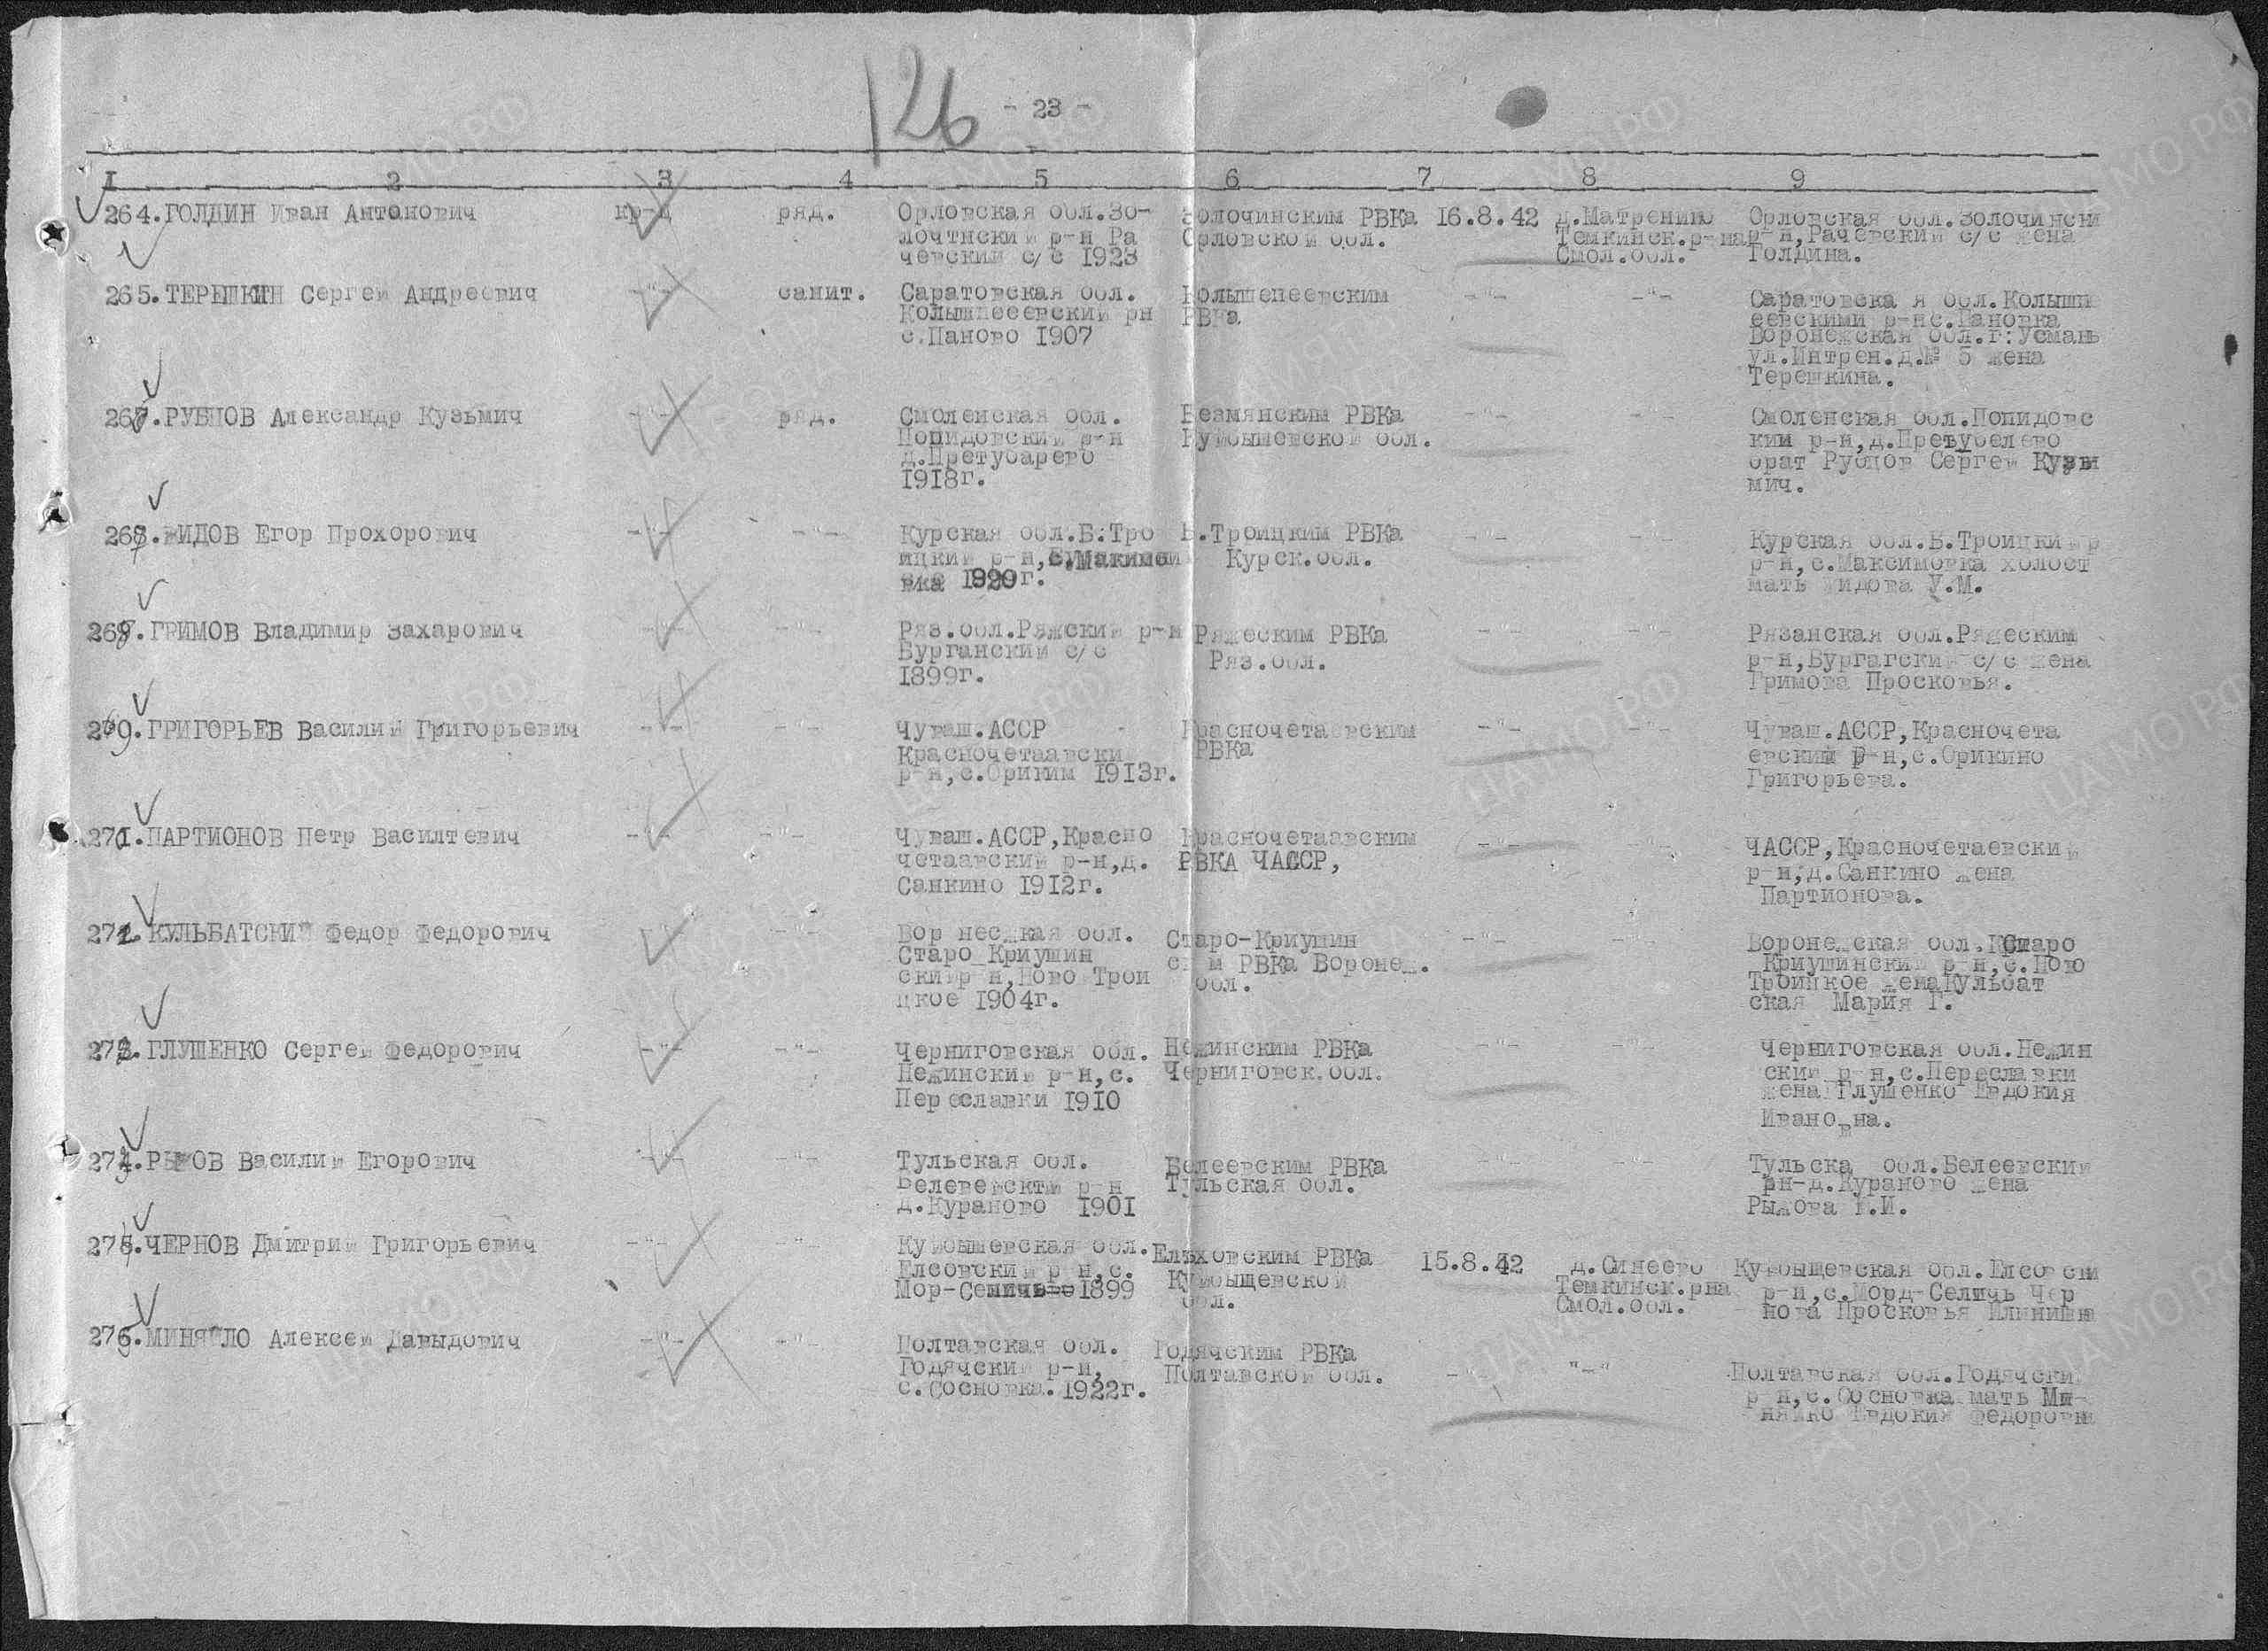 126
- 23 -
1 2 3 4 5 6 7 8 9
264. ГОЛДИН Иван Антонович кр-ц ряд. Орловская обл. Зо- Золочинским РВКа 16.8.42 д. Матренино Орловская обл. Золочинский
лочтнский р-н Ра Орловской обл. Темкинск. р-на р-н, Рачевский с/с жена
чевский с/с 1923 Смол. обл. Голдина.
265. ТЕРЕШКИН Сергей Андреевич -"- санит. Саратовская обл. Колышепеевским -"- -"- Саратовска я обл. Колышп
Колышпееевский рн РВКа еевскими р-н с. Пановка
с. Паново 1907 Воронежская обл. г: Усмань
ул. Интрен. д.№ 5 жена
Терешкина.
267. РУБЦОВ Александр Кузьмич -"- ряд. Смоленская обл. Безмянским РВКа -"- -"- Смоленская обл. Попидовс
Попидовский р-н Куйбышевской обл. кий р-н, д.
д. Претубарево брат Рубцов Сергей Кузь
1918г. мич.
268. ЖИДОВ Егор Прохорович -"- -"- Курская обл. Б: Тро Б. Троицким РВКа -"- -"- Курская обл. Б. Троицкий р
ицкий р-н, с. Курск. обл. р-н, с. Максимовка холост
вка 1920г. мать Жидова У.М.
268. ГРИМОВ Владимир Захарович -"- -"- Ряз. обл. Ряжский р-н Ряжеским РВКа -"- -"- Рязанская обл. Ряжеским
Бурганский с/с Ряз. обл. р-н, Бургагский с/с жена
1899г. Гримова Просковья.
269. ГРИГОРЬЕВ Василий Григорьевич -"- -"- Чуваш. АССР Красночетаевским -"- -"- Чуваш. АССР, Красночета
Красночетаавски РВКа евский р-н, с. Орикино
р-н, с. Ориким 1913г. Григорьева.
270. ПАРТИОНОВ Петр Василтевич -"- -"- Чуваш. АССР, Красно Красночетаавским -"- -"- ЧАССР, Красночетаевский
четаавский р-н, д. РВКА ЧАССР, р-н, д. Санкино жена
Санкино 1912г. Партионова.
271. КУЛЬБАТСКИЙ Федор Федорович -"- Вор несжкая обл. Старо-Криушин -"- -"- Воронежская обл. Старо
Старо Криушин ским РВКа Воронеж. Криушинский р-н, с. Ново
ский р-н, Ново Трои обл. Троицкое жена Кульбат
цкое 1904г. ская Мария Г.
272. ГЛУШЕНКО Сергей Федорович -"- -"- Черниговская обл. Нежинским РВКа -"- -"- Черниговская обл. Нежин
Нежинский р-н, с. Черниговск. обл. ский р-н, с. Переславки
Переславки 1910 жена Глушенко Евдокия
Ивановна.
273. РЫЖОВ Василий Егорович -"- -"- Тульская обл. Белеевским РВКа -"- -"- Тульска обл. Белеевский
Белевевсктй р-н Тульская обл. рн-д. Кураново жена
д. Кураново 1901 Рыжова
275. ЧЕРНОВ Дмитрий Григорьевич -"- -" Куйбышевская обл. Елховским РВКа 15.8.42 д. Синеево Куйбыщевская обл.
р-н, с. Куйбыщевской Темкинск. рна р-н, с. Морд-Селичь Чер
Мор- 1899 обл. Смол. обл. нова Просковья
276. МИНЯЙЛО Алексей Давыдович -"- -" Полтавская обл. Годячским РВКа
Годячский р-н, Полтавской обл. -"- "-" Полтавская обл. Годячски
с. Сосновка. 1922г. р-н, с. Сосновка мать Ми-
няйко Евдокия Федоровн